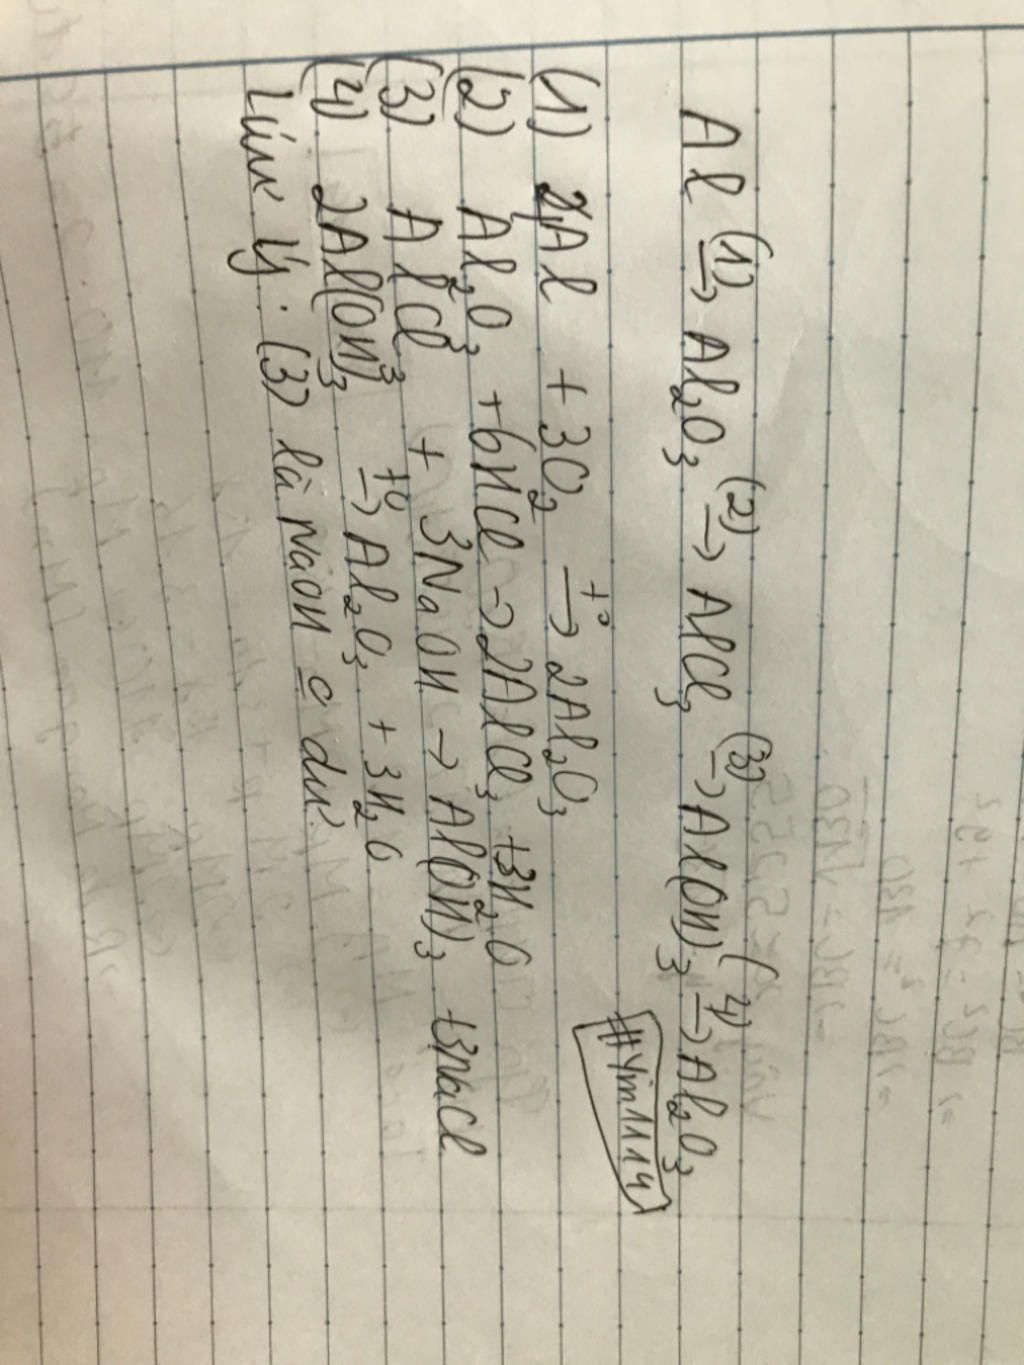 Al (1)→ Al₂O₃ (2)→ AlCl₃ (3)→ Al(OH)₃ (4)→ Al₂O₃
#Yin1114
(1) 4Al + 3O₂ t°→ 2Al₂O₃
(2) Al₂O₃ + 6HCl → 2AlCl₃ + 3H₂O
(3) AlCl₃ + 3NaOH → Al(OH)₃ + 3NaCl
(4) 2Al(OH)₃ t°→ Al₂O₃ + 3H₂O
Lưu ý: (3) là NaOH dư